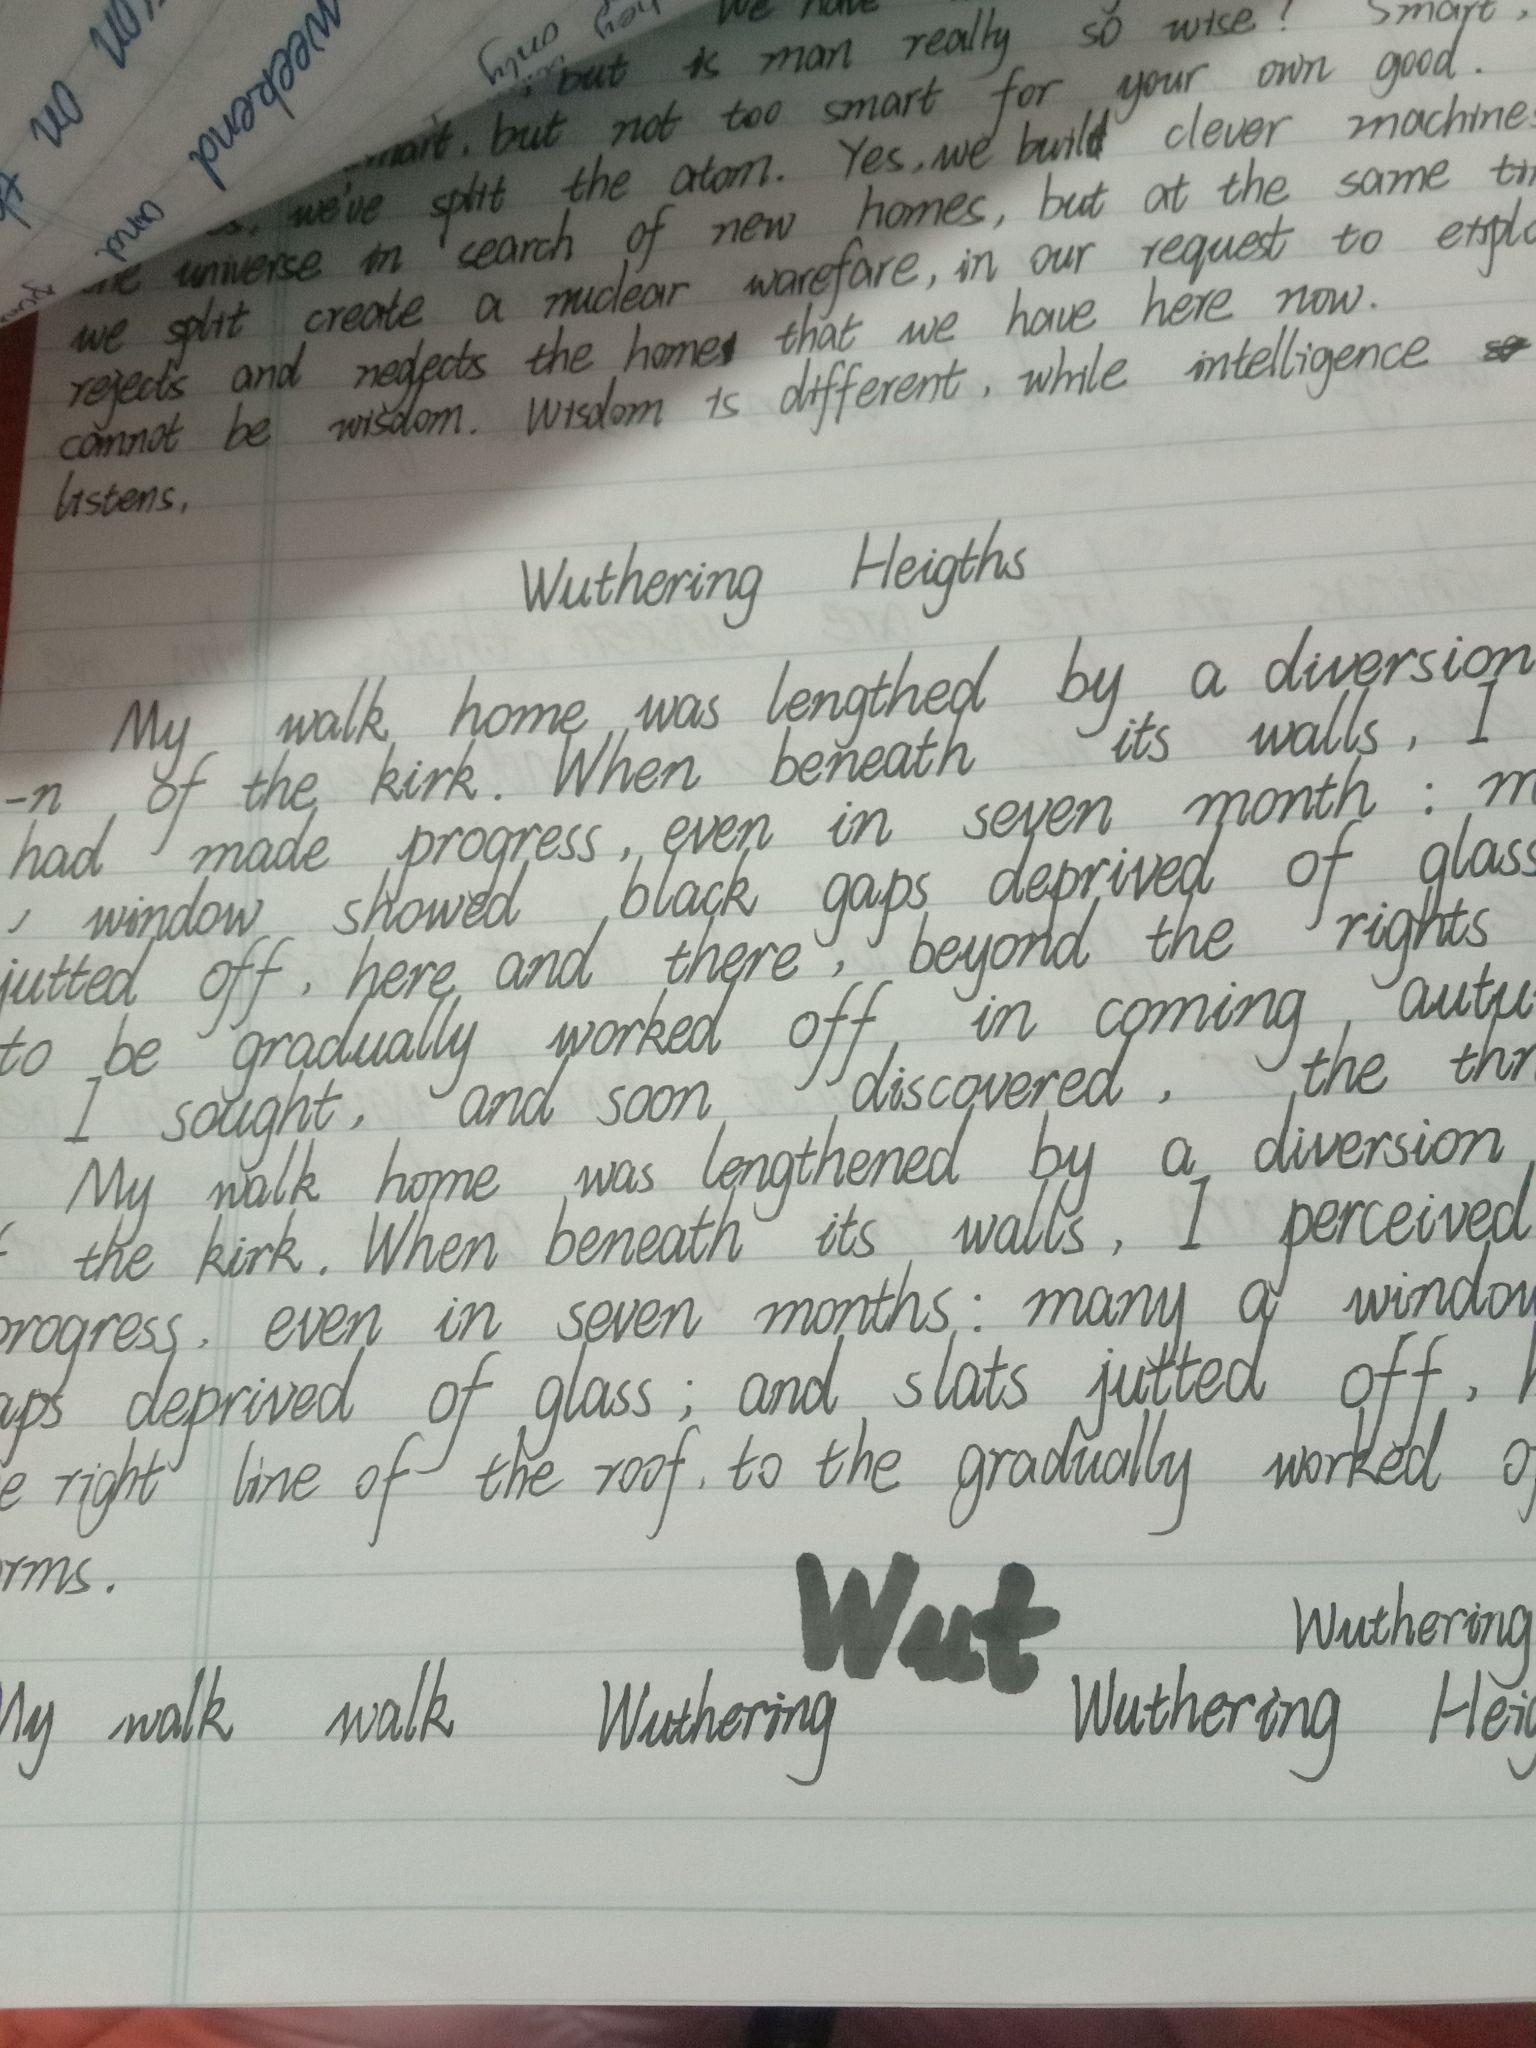 We have
but is man really so wise? Smart,
but not too smart for your own good.
we've split the atom. Yes, we build clever machines
universe in search of new homes, but at the same
we split create a nuclear warefare, in our request to
rejects and neglects the homes that we have here now.
cannot be wisdom. Wisdom is different, while intelligence
listens,
Wuthering Heigths
My walk home was lengthed by a diversion
-n of the kirk. When beneath its walls, I
had made progress, even in seven month : m
, window showed black gaps deprived of glass
jutted off, here and there, beyond the rights
to be gradually worked off in coming autu
I sought, and soon discovered, the thr
My walk home was lengthened by a diversion
the kirk. When beneath its walls, I perceived
progress, even in seven months: many a window
aps deprived of glass; and slats jutted off, h
e right line of the roof, to the gradually worked of
orms.
Wut Wuthering
My walk walk Wuthering Wuthering Heig
weekend
on
and
only
they